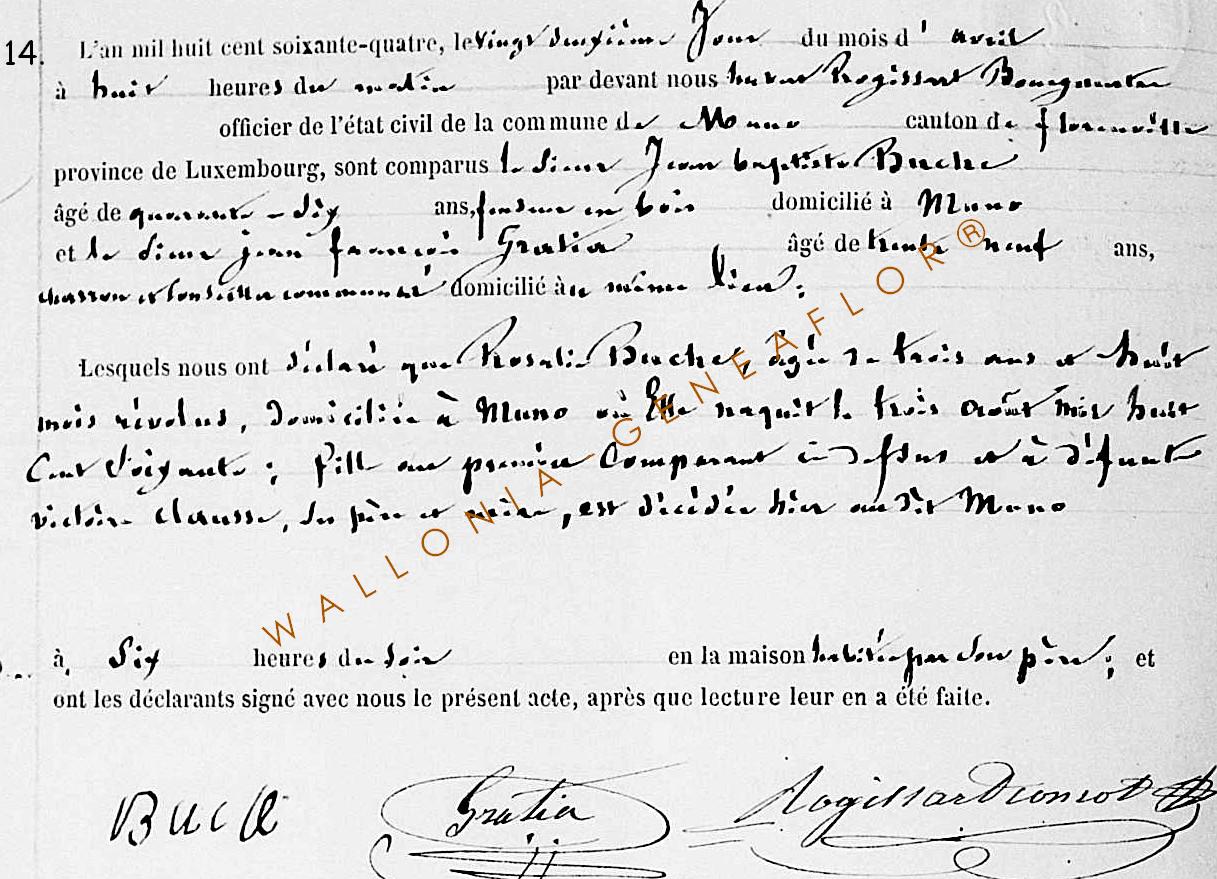 14. L'an mil huit cent soixante-quatre, le vingt deuxième Jour du mois d' avril
à huit heures du matin par devant nous Rogissart Bourgmestre
officier de l'état civil de la commune de Muno canton de florenville
province de Luxembourg, sont comparus le sieur Jean baptiste Buche
âgé de quarante-six ans, fendeur en bois domicilié à Muno
et le sieur jean françois Gratia âgé de trente neuf ans,
charron et Conseiller communal domicilié au même lieu ;
Lesquels nous ont déclaré que Rosalie Buche, âgée de trois ans et huit
mois révolus, domiciliée à Muno où Elle naquit le trois août mil huit
Cent Soixante ; fille au premier Comparant ci-dessus et à défunte
victoire Clausse, ses père et mère, est décédée hier audit Muno
à Six heures du soir en la maison habitée par son père ; et
ont les déclarants signé avec nous le présent acte, après que lecture leur en a été faite.
Gratia
WALLONIA-GENEAFLOR®